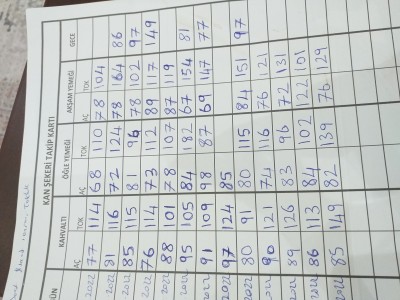 KAN ŞEKERİ TAKİP KARTI
GÜN KAHVALTI ÖĞLE YEMEĞİ AKŞAM YEMEĞİ GECE
AÇ TOK AÇ TOK AÇ TOK
2022 77 114 68 110 78 104
2022 91 116 72 124 78 164 86
2022 85 115 81 96 78 102 97
2022 76 114 73 112 89 117 149
2022 88 101 78 107 87 119
2022 95 105 84 182 67 154 81
2022 91 109 98 87 69 147 77
2022 97 124 85
2022 80 91 80 115 84 151 97
2022 90 121 74 116 76 121
2022 89 126 83 96 72 131
2022 86 113 84 102 122 101
2022 85 149 82 139 76 129